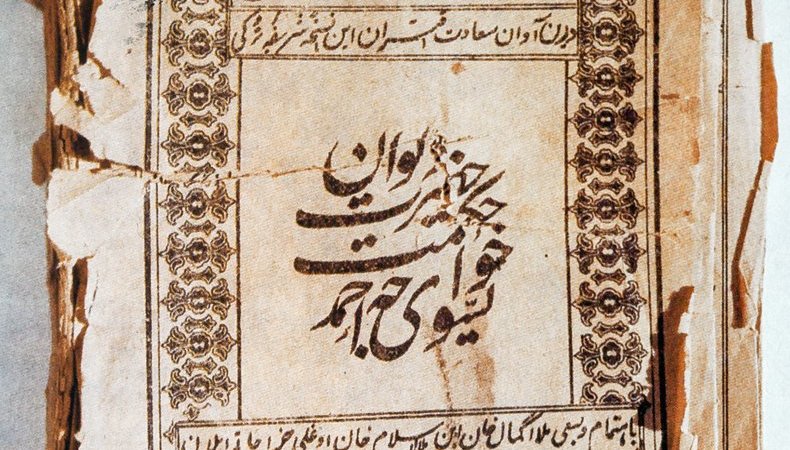 درین آوان سعادت اقتران این نسخه شریفه ترکی
دیوان
حضرت
حکمت
خواجه احمد
یسوی
باهتمام و بسعی ملا کمال خان ابن ملا اسلام خان اوغلی